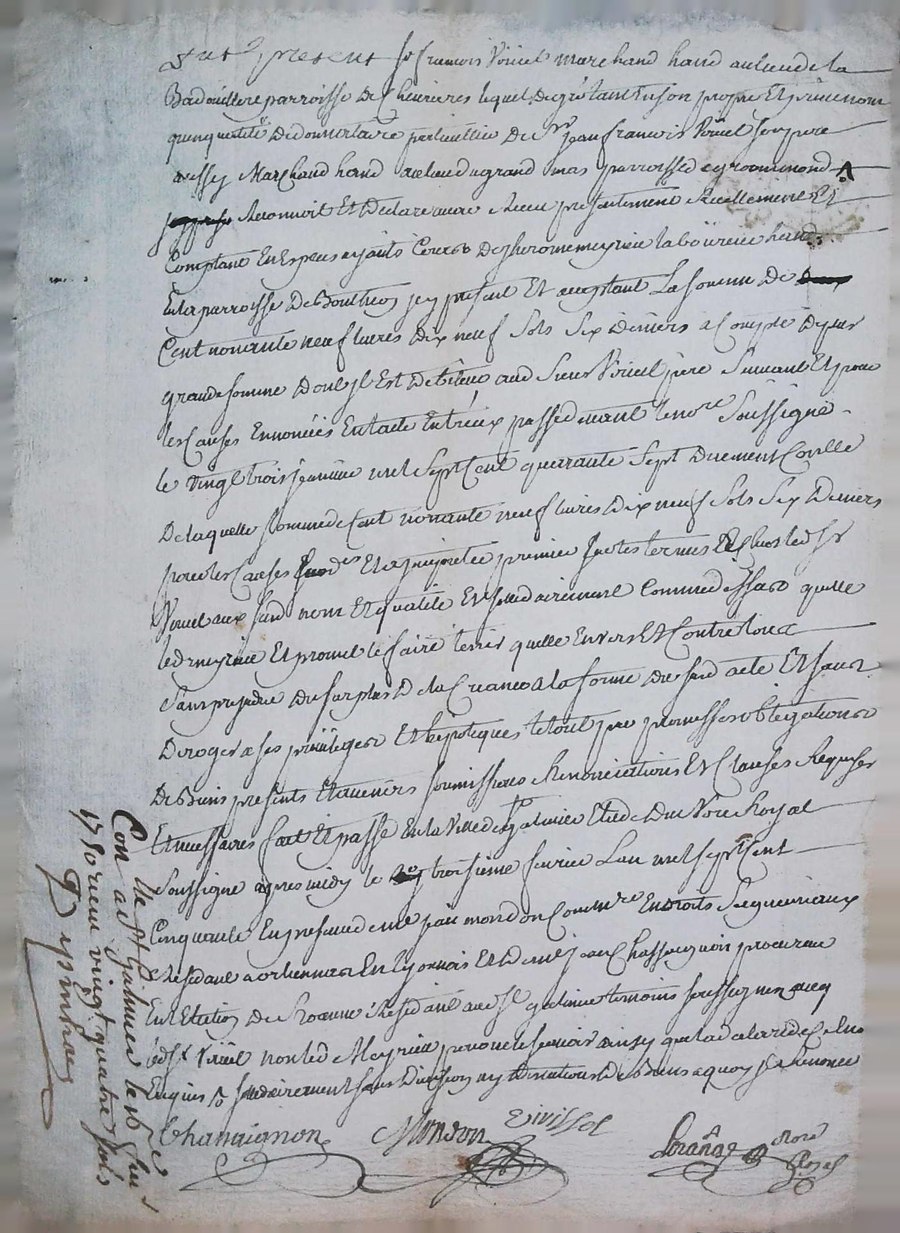 fut present sr francois Viricel marchand hand au lieu de la
parroisse de Chevrieres lequel de gré tant en son propre Et privé nom
qu'en qualité de donnataire de sr jean francois Viricel son pere
aussy Marchand hand au lieu du grand mas parroisse de
Reconnoit Et declare avoir Receu presentement Reellement Et
Comptant En Especes laboureur hand
En la parroisse De Boutheon jcy present Et acceptant La somme De
Cent nonante neuf livres Dix neuf sols Six Deniers a Compte Dplus
grande somme Dont jl Est Debiteur aud Sieur Viricel pere Suivant Et pour
les Causes Ennoncées En lacte Entreux passé devant le nore Soussigné
le Vingt trois janvier mil Sept Cent quarante Sept Duement Conllé
De laquelle somme de Cent nonante neuf livres Dix neuf Sols Six Deniers
pour les Causes Et a premiere led sr
Viricel aux susd nom Et qualité Et solidairement Comme dessus quitte
led meyrieu Et promet le faire tenir quitte Envers Et Contre tous
Sans prejudice Du surplus De la Creance a la forme Du susd acte Et sans
Deroger a ses privileges Et hipoteques le tout par promesses obligations
De Biens presents Et avenirs soumissions Renonciations Et Clauses Requises
Et necessaires fait Et passé En la Ville de St galmier Etude Du nore Royal
Soussigné apres midy le troisieme fevrier Lan mil sept Cent
Cinquante En presence de me mondon Commre En droits Seigneuriaux
Residant a En lyonnois Et De me jean Chassaignon procureur
En Election De Roanne Residant aud St galmier temoins soussignez avec
led sr Viricel non led Meyrieu pour ne le scavoir ainsy qu'il a declaré de ce
Enquis solidairement sans Division ny De Biens a quoy jl a Renoncé
Chassaignon Mondon Viricel nore
Royal
Con au St galmier le 16 fev
1750 receu vingt quatre sols